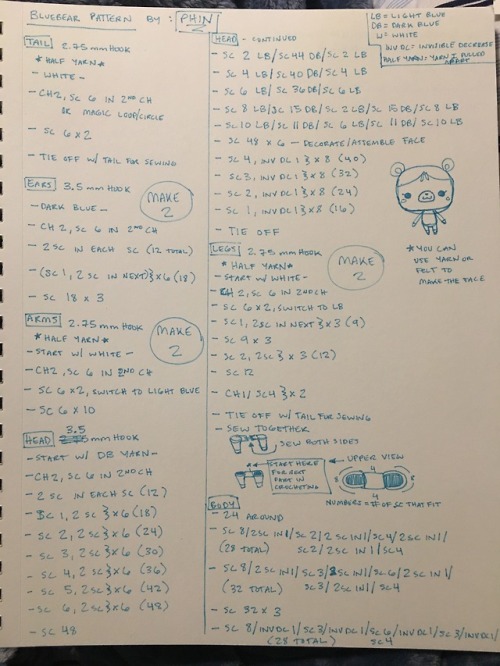 BLUEBEAR PATTERN BY: PHIN
LB = LIGHT BLUE
DB = DARK BLUE
W = WHITE
INV DC = INVISIBLE DECREASE
HALF YARN: YARN I PULLED APART
TAIL 2.75 mm HOOK
*HALF YARN*
- WHITE -
- CH2, SC 6 IN 2ND CH
OR MAGIC LOOP/CIRCLE
- SC 6 x 2
- TIE OFF W/ TAIL FOR SEWING
EARS 3.5 mm HOOK
MAKE 2
- DARK BLUE -
- CH 2, SC 6 IN 2ND CH
- 2SC IN EACH SC (12 TOTAL)
- (SC 1, 2 SC IN NEXT)} x 6 (18)
- SC 18 x 3
ARMS 2.75 mm HOOK
MAKE 2
*HALF YARN*
- START W/ WHITE -
- CH2, SC 6 IN 2ND CH
- SC 6 x 2, SWITCH TO LIGHT BLUE
- SC 6 x 10
HEAD 3.5 mm HOOK
- START W/ DB YARN -
- CH2, SC 6 IN 2ND CH
- 2 SC IN EACH SC (12)
- SC 1, 2 SC} x 6 (18)
- SC 2, 2 SC} x 6 (24)
- SC 3, 2 SC} x 6 (30)
- SC 4, 2 SC} x 6 (36)
- SC 5, 2 SC} x 6 (42)
- SC 6, 2 SC} x 6 (48)
- SC 48
HEAD - CONTINUED
- SC 2 LB/ SC 44 DB/ SC 2 LB
- SC 4 LB/ SC 40 DB/ SC 4 LB
- SC 6 LB/ SC 36 DB/ SC 6 LB
- SC 8 LB/ SC 15 DB/ SC 2 LB/ SC 15 DB/ SC 8 LB
- SC 10 LB/ SC 11 DB/ SC 6 LB/ SC 11 DB/ SC 10 LB
- SC 48 x 6 - DECORATE/ASSEMBLE FACE
- SC 4, INV DC 1} x 8 (40)
- SC 3, INV DC 1} x 8 (32)
- SC 2, INV DC 1} x 8 (24)
- SC 1, INV DC 1} x 8 (16)
- TIE OFF
*YOU CAN
USE YARN OR
FELT TO
MAKE THE FACE
LEGS 2.75 mm HOOK
MAKE 2
*HALF YARN*
- START W/ WHITE -
- CH 2, SC 6 IN 2ND CH
- SC 6 x 2, SWITCH TO LB
- SC 1, 2SC IN NEXT} x 3 (9)
- SC 9 x 3
- SC 2, 2SC} x 3 (12)
- SC 12
- CH1/ SC4 } x 2
- TIE OFF W/ TAIL FOR SEWING
- SEW TOGETHER
SEW BOTH SIDES
START HERE
FOR NEXT
PART IN
CROCHETING
UPPER VIEW
8 4 8
4
NUMBERS = # OF SC THAT FIT
BODY
- 24 AROUND
- SC 8/ 2SC IN 1/ SC 2/ 2 SC IN 1/ SC 4/ 2SC IN 1/
(28 TOTAL) SC 2/ 2SC IN 1/ SC 4
- SC 8/ 2SC IN 1/ SC 3/ 2SC IN 1/ SC 6/ 2SC IN 1/
(32 TOTAL) SC 3/ 2SC IN 1/ SC 4
- SC 32 x 3
- SC 8/ INV DC 1/ SC 3/ INV DC 1/ SC 6/ INV DC 1/ SC 3/ INV DC 1/
(28 TOTAL) SC 4